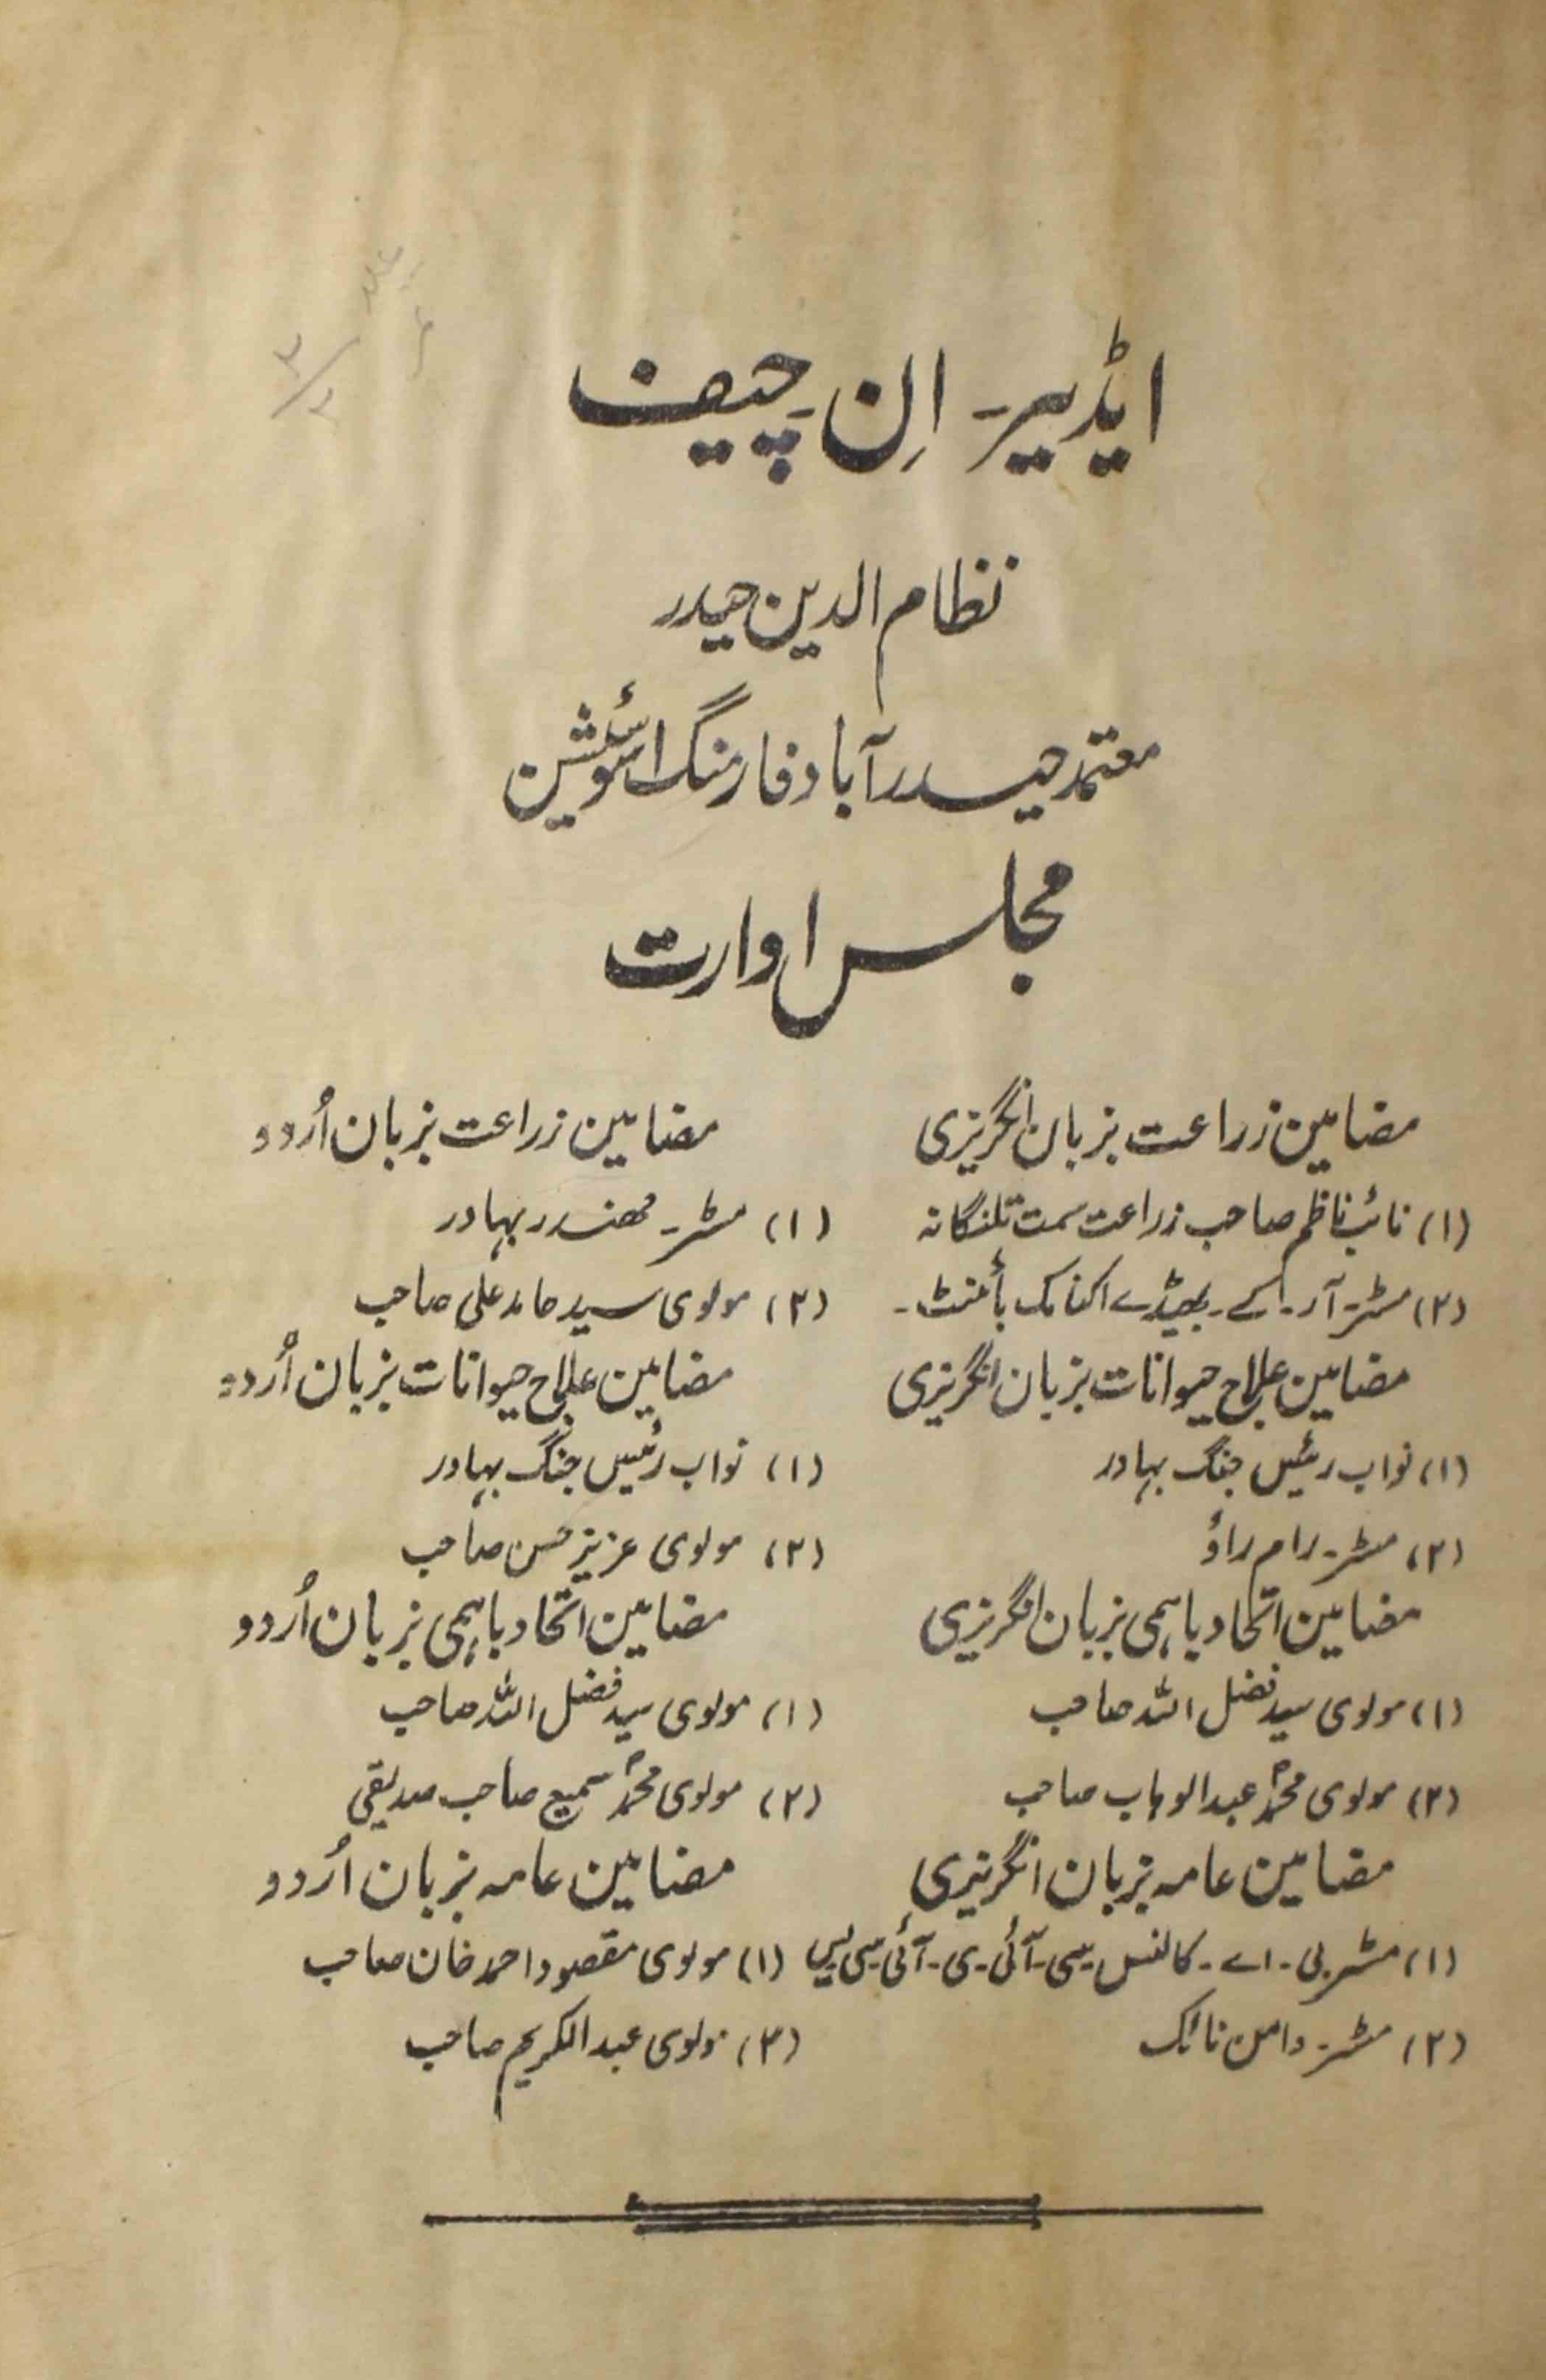 ایڈیٹر۔ اِن چیف
نظام الدین حیدر
معتمد حیدرآباد فارمنگ اسوسئیشن
مجلس ادارت
مضامین زراعت بزبان انگریزی
(۱) نائب ناظم صاحب زراعت سمت تلنگانہ
(۲) مسٹر۔ آر۔ کے۔ بھیڈے اکنامک بأٹنسٹ۔
مضامین علاج حیوانات بزبان انگریزی
(۱) نواب رئیس جنگ بہادر
(۲) مسٹر۔ رام راؤ
مضامین اتحاد باہمی بزبان انگریزی
(۱) مولوی سید فضل اللہ صاحب
(۲) مولوی محمد عبدالوہاب صاحب
مضامین عامہ بزبان انگریزی
(۱) مسٹر بی۔ اے۔ کالنس سی۔ آئی۔ ی۔ آئی سی یس
(۲) مسٹر۔ وامن نائک
مضامین زراعت بزبان اُردو
(۱) مسٹر۔ مھندر بہادر
(۲) مولوی سید حامد علی صاحب
مضامین علاج حیوانات بزبان اُردو
(۱) نواب رئیس جنگ بہادر
(۲) مولوی عزیز حسن صاحب
مضامین اتحاد باہمی بزبان اُردو
(۱) مولوی سید فضل اللہ صاحب
(۲) مولوی محمد سمیع صاحب صدیقی
مضامین عامہ بزبان اُردو
(۱) مولوی مقصود احمد خان صاحب
(۲) مولوی عبدالکریم صاحب